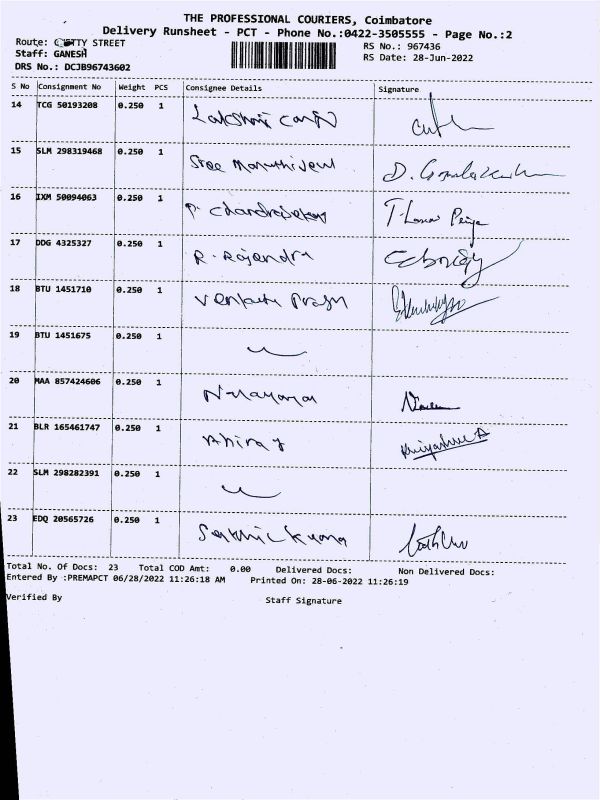 THE PROFESSIONAL COURIERS, Coimbatore
Delivery Runsheet - PCT - Phone No.:0422-3505555 - Page No.:2
Route: STREET
RS No.: 967436
Staff: GANESH
RS Date: 28-Jun-2022
DRS No.: DCJB96743602
S No Consignment No Weight PCS Consignee Details Signature
14 TCG 50193208 0.250 1 Lakshmi
15 SLM 298319468 0.250 1 Sree
16 IXM 50094063 0.250 1 P. Chandrasekar
17 DDG 4325327 0.250 1 R. Rajendra
18 BTU 1451710 0.250 1
19 BTU 1451675 0.250 1
20 MAA 857424606 0.250 1 Narayanan
21 BLR 165461747 0.250 1
22 SLM 298282391 0.250 1
23 EDQ 20565726 0.250 1
Total No. Of Docs: 23 Total COD Amt: 0.00 Delivered Docs: Non Delivered Docs:
Entered By :PREMAPCT 06/28/2022 11:26:18 AM Printed On: 28-06-2022 11:26:19
Verified By Staff Signature